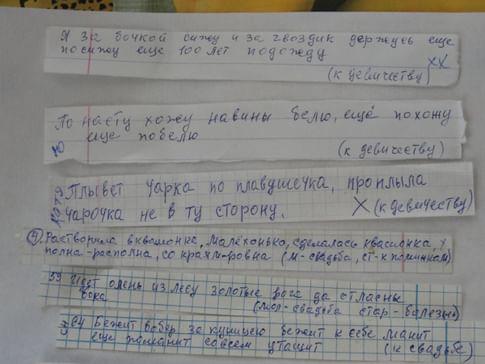 Я за бочкой сижу и за гвоздик держусь еще
посижу еще 100 лет подожду
XX
(к девичеству)
По насту хожу навины белю, ещё похожу
еще побелю
(к девичеству)
Плывет чарка по плавушечка, проплыла
чарочка не в ту сторону. X (к девичеству)
Растворила квашонка, малёхонько, сделалась квасшонка,
полна-располна, со краями ровна (м-свадьба, ст-к поминкам)
59 Идет олень из лесу золотые рога да атласны
бока (мол-свадьба стар-болезнь)
64 Бежит бобер за куницею бежит к себе манит
еще поманит совсем утащит (к свадьбе)